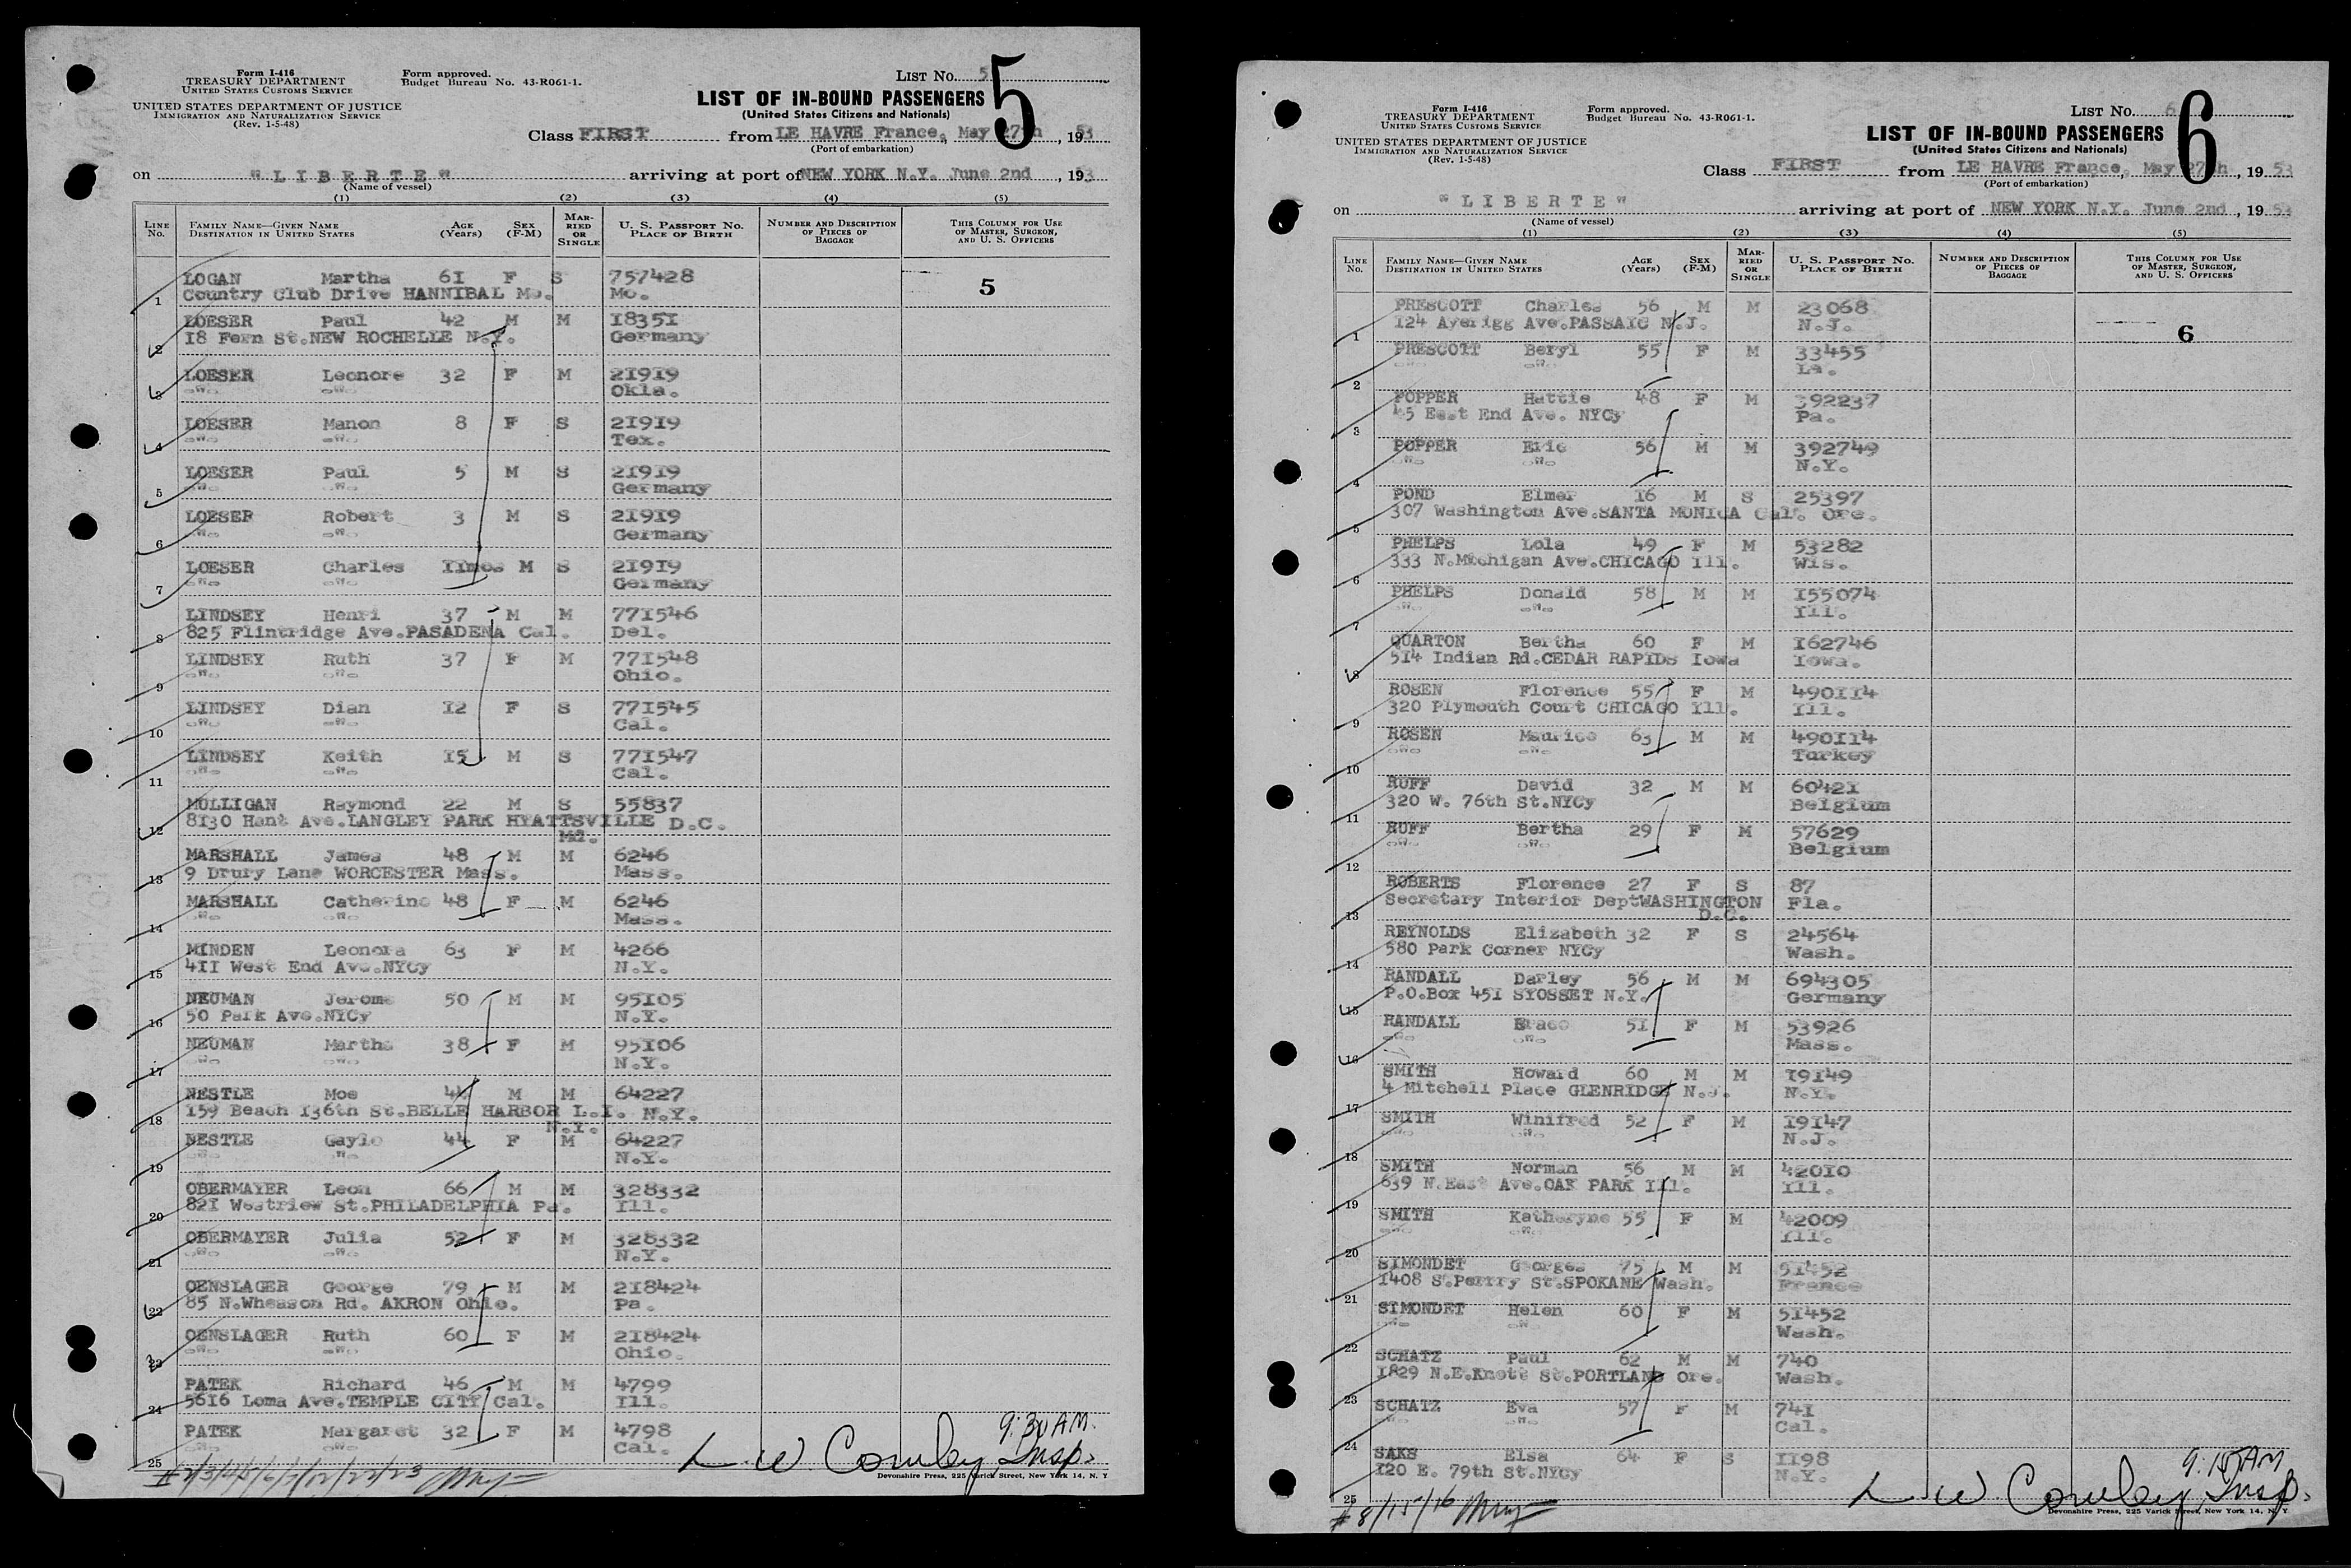 Form I-416
TREASURY DEPARTMENT
UNITED STATES CUSTOMS SERVICE
UNITED STATES DEPARTMENT OF JUSTICE
IMMIGRATION AND NATURALIZATION SERVICE
(Rev. 1-5-48)
Form approved.
Budget Bureau No. 43-R061-1.
LIST NO. 5
5
LIST OF IN-BOUND PASSENGERS
(United States Citizens and Nationals)
Class FIRST from LE HAVRE France, May 27th, 1953
(Port of embarkation)
on "LIBERTE" arriving at port of NEW YORK N.Y. June 2nd, 193
(Name of vessel)
(1) (2) (3) (4) (5)
LINE No. FAMILY NAME—GIVEN NAME DESTINATION IN UNITED STATES AGE (Years) SEX (F-M) MARRIED OR SINGLE U. S. PASSPORT NO. PLACE OF BIRTH NUMBER AND DESCRIPTION OF PIECES OF BAGGAGE THIS COLUMN FOR USE OF MASTER, SURGEON, AND U. S. OFFICERS
LOGAN Martha 61 F S 757428
1 Country Club Drive HANNIBAL Mo. Mo. 5
LOESER Paul 42 M M 18351
2 18 Fern St.NEW ROCHELLE N.Y. Germany
LOESER Leonore 32 F M 21919
3 -"- -"- Okla.
LOESER Manon 8 F S 21919
4 -"- -"- Tex.
LOESER Paul 5 M S 21919
5 -"- -"- Germany
LOESER Robert 3 M S 21919
6 -"- -"- Germany
LOESER Charles 11mos M S 21919
7 -"- -"- Germany
LINDSEY Henri 37 M M 771546
8 825 Flintridge Ave.PASADENA Cal. Del.
LINDSEY Ruth 37 F M 771548
9 -"- -"- Ohio.
LINDSEY Dian 12 F S 771545
10 -"- -"- Cal.
LINDSEY Keith 15 M S 771547
11 -"- -"- Cal.
MULLIGAN Raymond 22 M S 55837
12 8130 Hant Ave.LANGLEY PARK HYATTSVILLE D.C.
Md.
MARSHALL James 48 M M 6246
13 9 Drury Lane WORCESTER Mass. Mass.
MARSHALL Catherine 48 F M 6246
14 -"- -"- Mass.
MINDEN Leonora 63 F M 4266
15 411 West End Ave.NYCy N.Y.
NEUMAN Jerome 50 M M 95105
16 50 Park Ave.NYCy N.Y.
NEUMAN Martha 38 F M 95106
17 -"- -"- N.Y.
NESTLE Moe M M 64227
18 159 Beach 136th St.BELLE HARBOR L.I. N.Y.
N.Y.
NESTLE Gayle 44 F M 64227
19 -"- " N.Y.
OBERMAYER Leon 66 M M 328332
20 821 Westriew St.PHILADELPHIA Pa. Ill.
OBERMAYER Julia 52 F M 328332
21 -"- -"- N.Y.
OENSLAGER George 79 M M 218424
22 85 N.Wheason Rd. AKRON Ohio. Pa.
OENSLAGER Ruth 60 F M 218424
23 -"- -"- Ohio.
PATEK Richard 46 M M 4799
24 5616 Loma Ave.TEMPLE CITY Cal. Ill.
PATEK Margaret 32 F M 4798
25 -"- -"- Cal.
9:30 AM.
L. W. Cowley, Insp.
#2/3/4/5/6/7/12/22/23
Devonshire Press, 225 Varick Street, New York 14, N. Y
Form I-416
TREASURY DEPARTMENT
UNITED STATES CUSTOMS SERVICE
UNITED STATES DEPARTMENT OF JUSTICE
IMMIGRATION AND NATURALIZATION SERVICE
(Rev. 1-5-48)
Form approved.
Budget Bureau No. 43-R061-1.
LIST NO. 6
6
LIST OF IN-BOUND PASSENGERS
(United States Citizens and Nationals)
Class FIRST from LE HAVRE France, May 27th, 1953
(Port of embarkation)
on "LIBERTE" arriving at port of NEW YORK N.Y. June 2nd, 1953
(Name of vessel)
(1) (2) (3) (4) (5)
LINE No. FAMILY NAME—GIVEN NAME DESTINATION IN UNITED STATES AGE (Years) SEX (F-M) MARRIED OR SINGLE U. S. PASSPORT NO. PLACE OF BIRTH NUMBER AND DESCRIPTION OF PIECES OF BAGGAGE THIS COLUMN FOR USE OF MASTER, SURGEON, AND U. S. OFFICERS
PRESCOTT Charles 56 M M 23068
1 124 Ayerigg Ave.PASSAIC N.J. N.J. 6
PRESCOTT Beryl 55 F M 33455
2 -"- -"- La.
POPPER Hattie 48 F M 392237
3 45 East End Ave. NYCy Pa.
POPPER Eric 56 M M 392749
4 -"- -"- N.Y.
POND Elmer 16 M S 25397
5 307 Washington Ave.SANTA MONICA Cal. Ore.
PHELPS Lola 49 F M 53282
6 333 N.Michigan Ave.CHICAGO Ill. Wis.
PHELPS Donald 58 M M 155074
7 -"- -"- Ill.
QUARTON Bertha 60 F M 162746
8 514 Indian Rd.CEDAR RAPIDS Iowa Iowa.
ROSEN Florence 55 F M 490114
9 320 Plymouth Court CHICAGO Ill. Ill.
ROSEN Maurice 63 M M 490114
10 -"- -"- Turkey
RUFF David 32 M M 60421
11 320 W. 76th St.NYCy Belgium
RUFF Bertha 29 F M 57629
12 -"- -"- Belgium
ROBERTS Florence 27 F S 87
13 Secretary Interior DeptWASHINGTON Fla.
D.C.
REYNOLDS Elizabeth 32 F S 24564
14 580 Park Corner NYCy Wash.
RANDALL Darley 56 M M 694305
15 P.O.Box 451 SYOSSET N.Y. Germany
RANDALL 51 F M 53926
16 -"- -"- Mass.
SMITH Howard 60 M M 19149
17 4 Mitchell Place GLENRIDGE N.J. N.Y.
SMITH Winifred 52 F M 19147
18 -"- -"- N.J.
SMITH Norman 56 M M 42010
19 639 N.East Ave.OAK PARK Ill. Ill.
SMITH Katheryne 55 F M 42009
20 -"- -"- Ill.
SIMONDET Georges 75 M M 51452
21 1408 S.Perry St.SPOKANE Wash. France
SIMONDET Helen 60 F M 51452
22 -"- -"- Wash.
SCHATZ Paul 62 M M 740
23 1829 N.E.Knott St.PORTLAND Ore. Wash.
SCHATZ Eva 57 F M 741
24 -"- -"- Cal.
SAKS Elsa 64 F S 1198
25 120 E. 79th St.NYCy N.Y.
9:15 AM
L. W. Cowley, Insp.
#8/15/16
Devonshire Press, 225 Varick Street, New York 14, N. Y